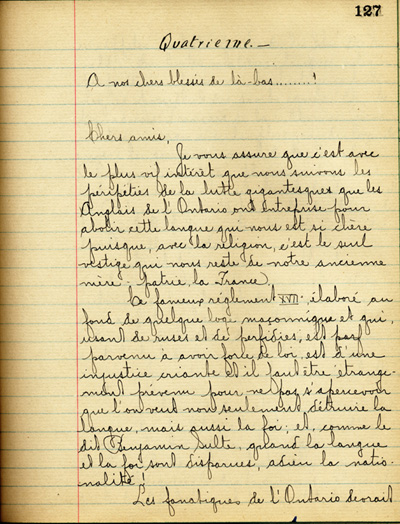 127
Quatrième.—
A nos chers blessés de là-bas........!
Chers amis,
Je vous assure que c'est avec
le plus vif intérêt que nous suivons les
péripéties de la lutte gigantesque que les
Anglais de l'Ontario ont entreprise pour
abolir cette langue qui nous est si chère
puisque, avec la religion, c'est le seul
vestige qui nous reste de notre ancienne
mère-patrie, la France.
Ce fameux règlement XVII, élaboré au
fond de quelque loge maçonnique et qui,
usant de ruses et de perfidies, est
parvenu à avoir force de loi, est d'une
injustice criante et il faut être étrange-
ment prévenu pour ne pas s'apercevoir
que l'on veut non seulement détruire la
langue, mais aussi la foi; et, comme le
dit Benjamin Sulte, quand la langue
et la foi sont disparues, adieu la natio-
nalité!
Les fanatiques de l'Ontario